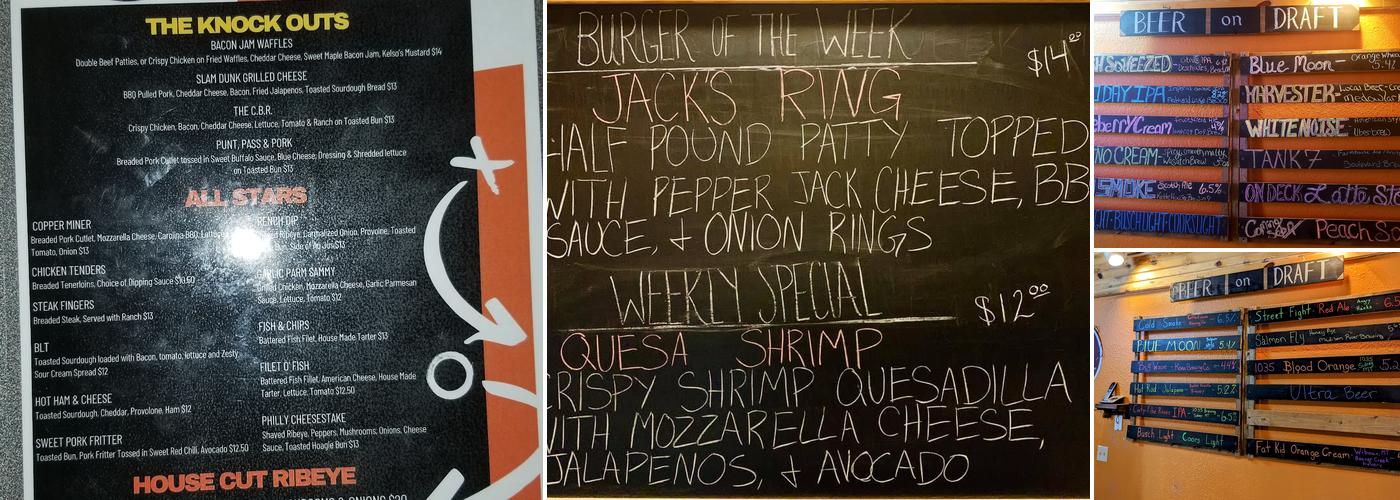 THE KNOCK OUTS
BACON JAM WAFFLES
Double Beef Patties, or Crispy Chicken on Fried Waffles, Cheddar Cheese, Sweet Maple Bacon Jam, Kelso's Mustard $14
SLAM DUNK GRILLED CHEESE
BBQ Pulled Pork, Cheddar Cheese, Bacon, Fried Jalapenos, Toasted Sourdough Bread $13
THE C.B.R.
Crispy Chicken, Bacon, Cheddar Cheese, Lettuce, Tomato & Ranch on Toasted Bun $13
PUNT, PASS & PORK
Breaded Pork Cutlet tossed in Sweet Buffalo Sauce, Blue Cheese, Dressing & Shredded lettuce
on Toasted Bun $13
ALL STARS
COPPER MINER
Breaded Pork Cutlet, Mozzarella Cheese, Carolina BBQ,
Tomato, Onion $13
CHICKEN TENDERS
Breaded Tenderloins, Choice of Dipping Sauce $10.50
STEAK FINGERS
Breaded Steak, Served with Ranch $13
BLT
Toasted Sourdough loaded with Bacon, tomato, lettuce and Zesty
Sour Cream Spread $12
HOT HAM & CHEESE
Toasted Sourdough, Cheddar, Provolone, Ham $12
SWEET PORK FRITTER
Toasted Bun, Pork Fritter Tossed in Sweet Red Chili, Avocado $12.50
DIP
Ribeye, Carmalized Onion, Provolne, Toasted
Side of Au Jus $13
GARLIC PARM SAMMY
Chicken, Mozzarella Cheese, Garlic Parmesan
Sauce, Lettuce, Tomato $12
FISH & CHIPS
Battered Fish Filet, House Made Tarter $13
FILET O' FISH
Battered Fish Fillet, American Cheese, House Made
Tarter, Lettuce, Tomato $12.50
PHILLY CHEESESTAKE
Shaved Ribeye, Peppers, Mushrooms, Onions, Cheese
Sauce, Toasted Hoagie Bun $13
HOUSE CUT RIBEYE
BURGER OF THE WEEK
$14.00
JACK'S RING
HALF POUND PATTY TOPPED
WITH PEPPER JACK CHEESE, BB
SAUCE, & ONION RINGS
WEEKLY SPECIAL
$12.00
QUESA SHRIMP
CRISPY SHRIMP QUESADILLA
WITH MOZZARELLA CHEESE,
JALAPENOS, & AVOCADO
BEER on DRAFT
SQUEEZED
IDAY IPA
berry Cream
NO CREAM
SMOKE Scotch Ale 6.5%
BUSCH LIGHT COORS LIGHT
Blue Moon
HARVESTER
WHITE NOISE
TANK 7
ON DECK Latte
Peach
BEER on DRAFT
Cold Smoke 6.5%
BLUE MOON 5.4%
Hot Rod Jalapeno 5.2%
IPA 6.5%
Busch Light Coors Light
Street Fight Red Ale
Salmon Fly
1035 Blood Orange
Ultra Beer
Fat Kid Orange Cream